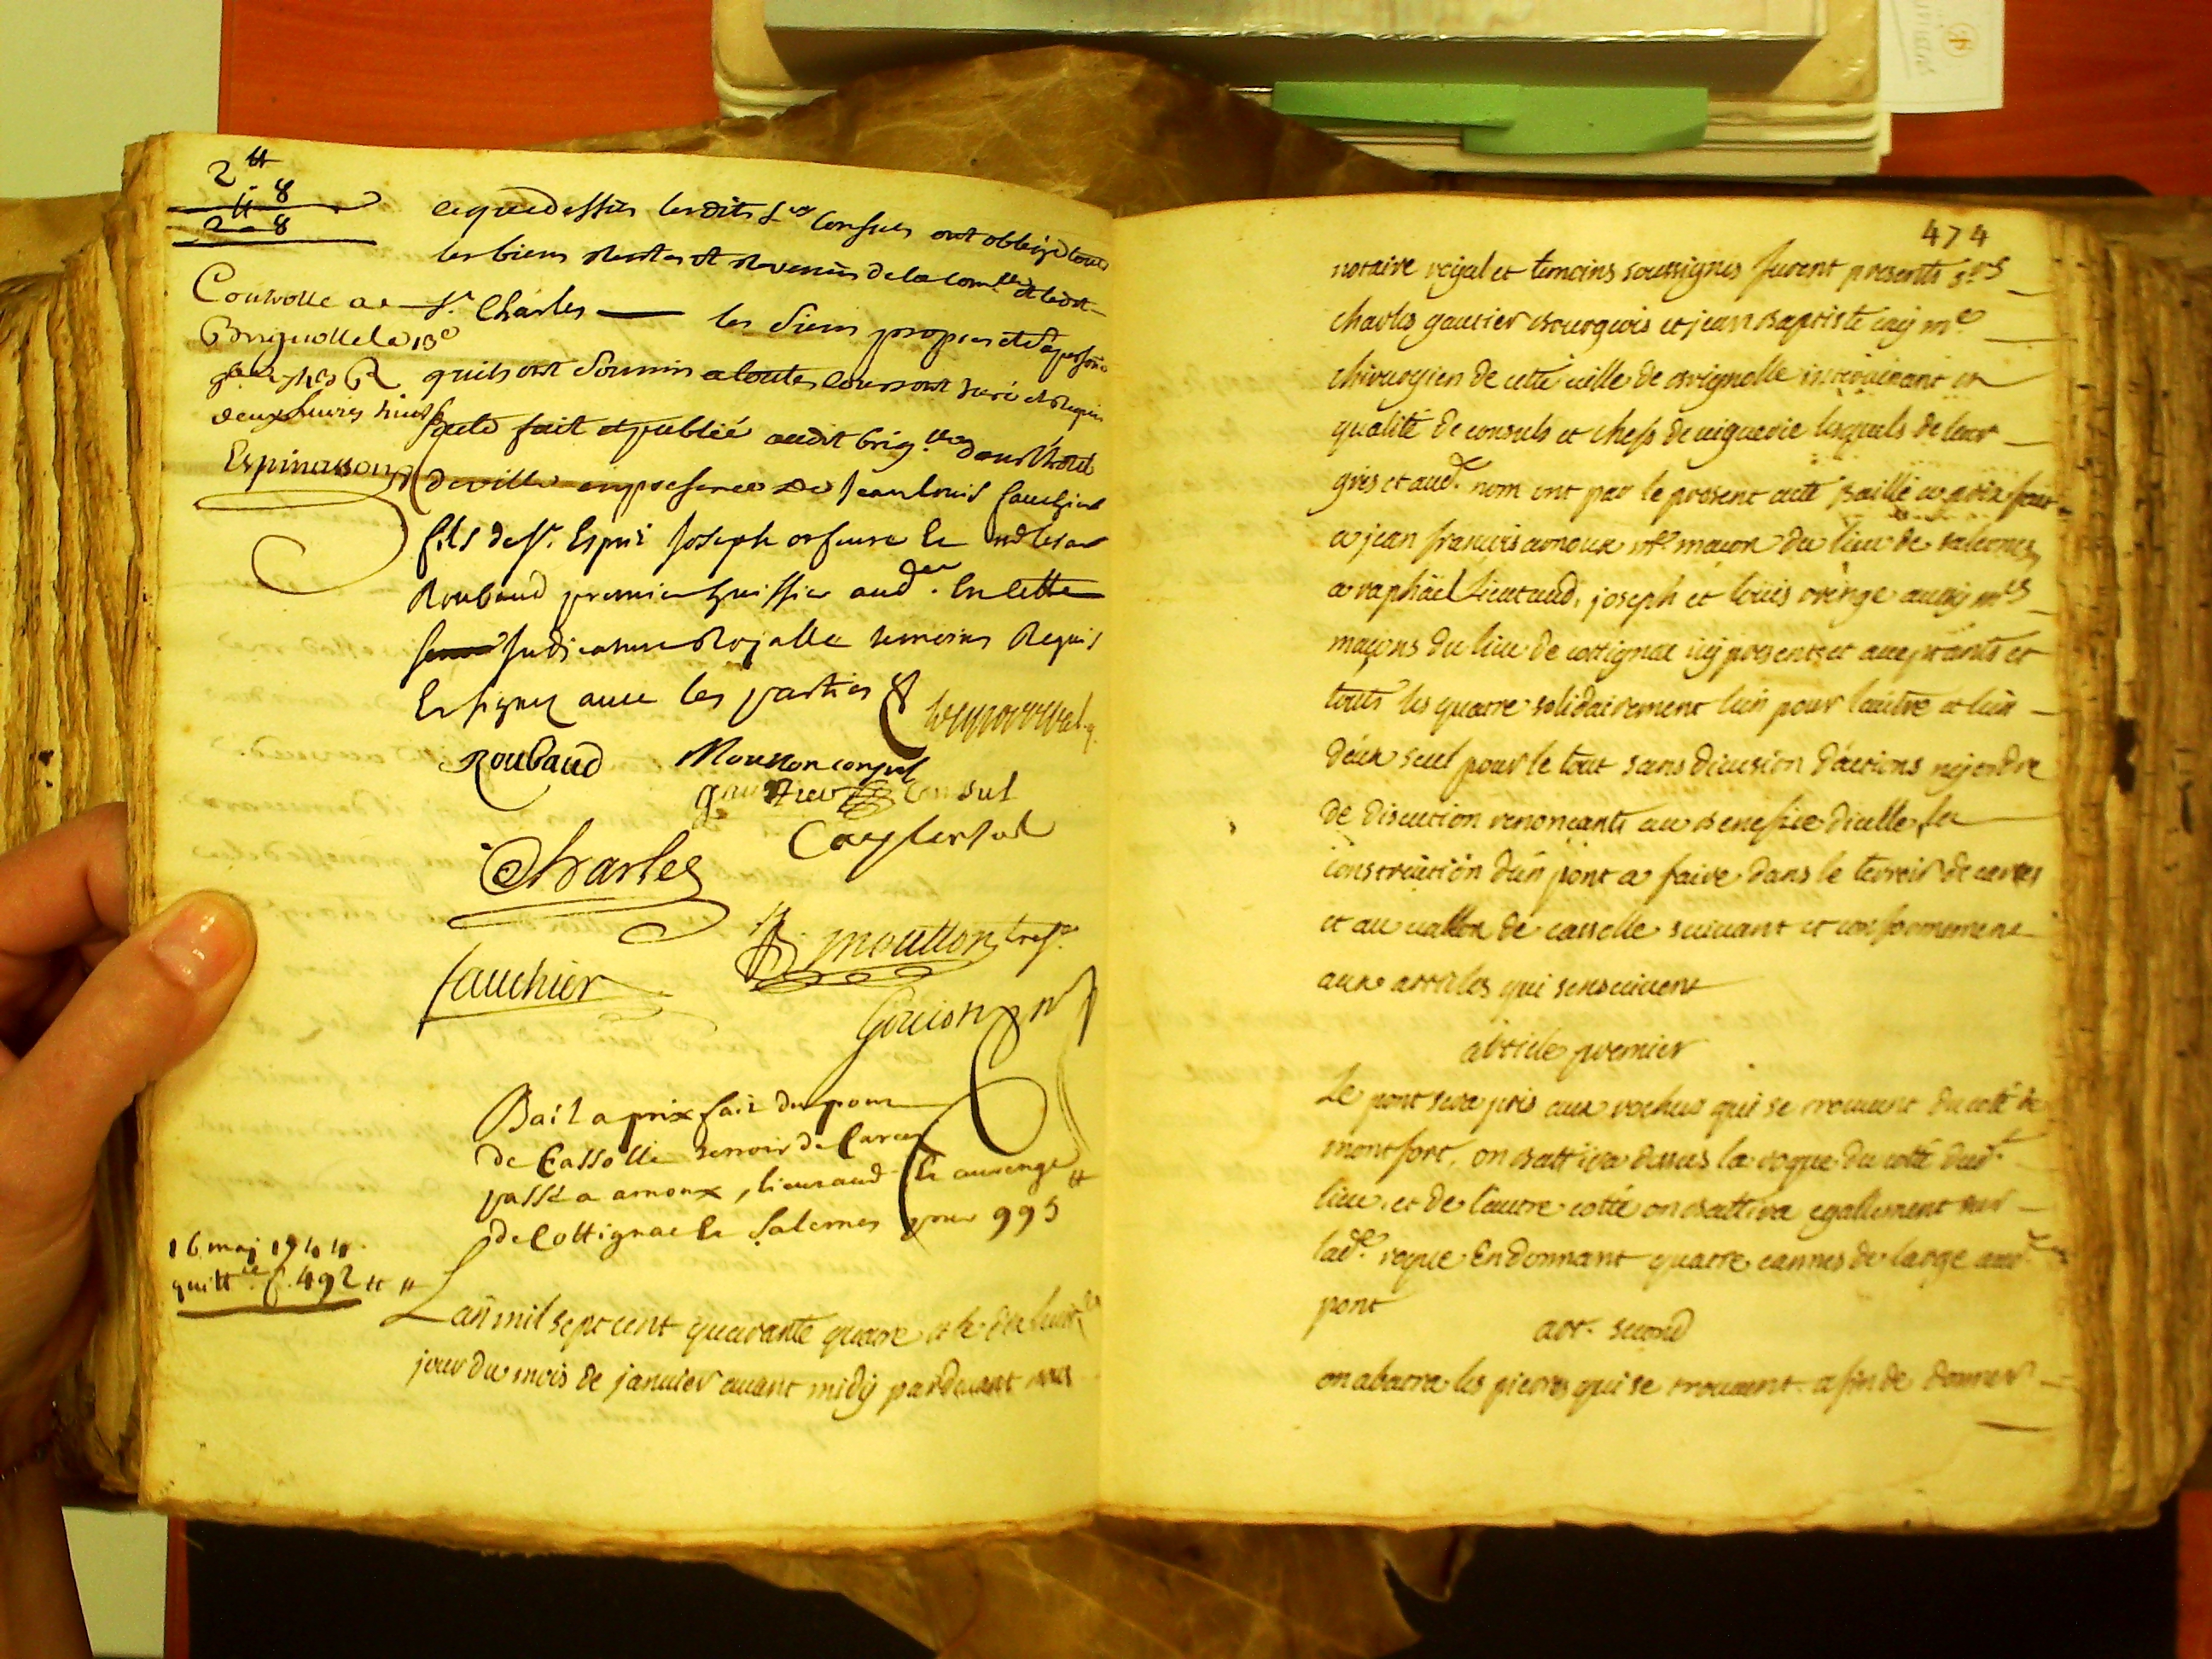 2 ₶
" 8
2 - 8
Controlle a
Brignolle le 18e
deux livres huit s
Espinasson
ce que dessus lesdits Srs Consuls ont obligé tous
les biens rentes et revenus de la comté et ledit
Sr Charles — les siens propres et sa personne
quils ont soumis a toutes cours ont juré et requis
acte fait et publié audit briglles dans lhotel
de ville en presence de Jean louis fauchier
fils de Sr. Esprit Joseph orfeuvre et
Roubaud premier huissier audr. En cette
Judicature Royalle temoins Requis
Et signez avec les parties
Roubaud Moutton consul
gautier consul
Caÿ Consul
Charles
moutton tresr
fauchier
Goujon nre
Bail a prix fait du pont
de Cassolle terroir de Carces
passé a arnoux, lieutaud et aurenge
de Cottignac et Salernes pour 995 ₶
16 maj 1744
quittce f. 492
Lan mil sept cent quarante quatre et le dix huit
jour du mois de janvier avant midÿ pardevant nous
474
notaire roÿal et temoins soussignés furent presents srs
charles gautier bourgeois et jean baptiste caÿ me
chirurgien de cette ville de brignolle intervenant en
qualité de consuls et chefs de viguerie lesquels de leur
grés et aud. nom ont par le present acte baillé a prix fait
a jean françois arnoux me maçon du lieu de salernes
a raphäel lieutaud, joseph et loüis orenge aussÿ mes
maçons du lieu de cottignac icÿ presents et acceptants et
touts les quatre solidairement lun pour lautre et lun
deux seul pour le tout sans division dactions nÿ ordre
de discution renonçants au benefice dicelle, la
construction dun pont a faire dans le terroir de carces
et au vallon de cassolle suivant et conformement
aux articles qui sensuivent
article premier
Le pont sera pris aux rochers qui se trouvent du coté de
montfort, on battira dessus la roque du coté dud.
lieu, et de lautre cotté on battira egallement sur
lad. roque En donnant quatre cannes de large aud.
pont
art. second
on abatra les pierres qui se trouvent afin de donner